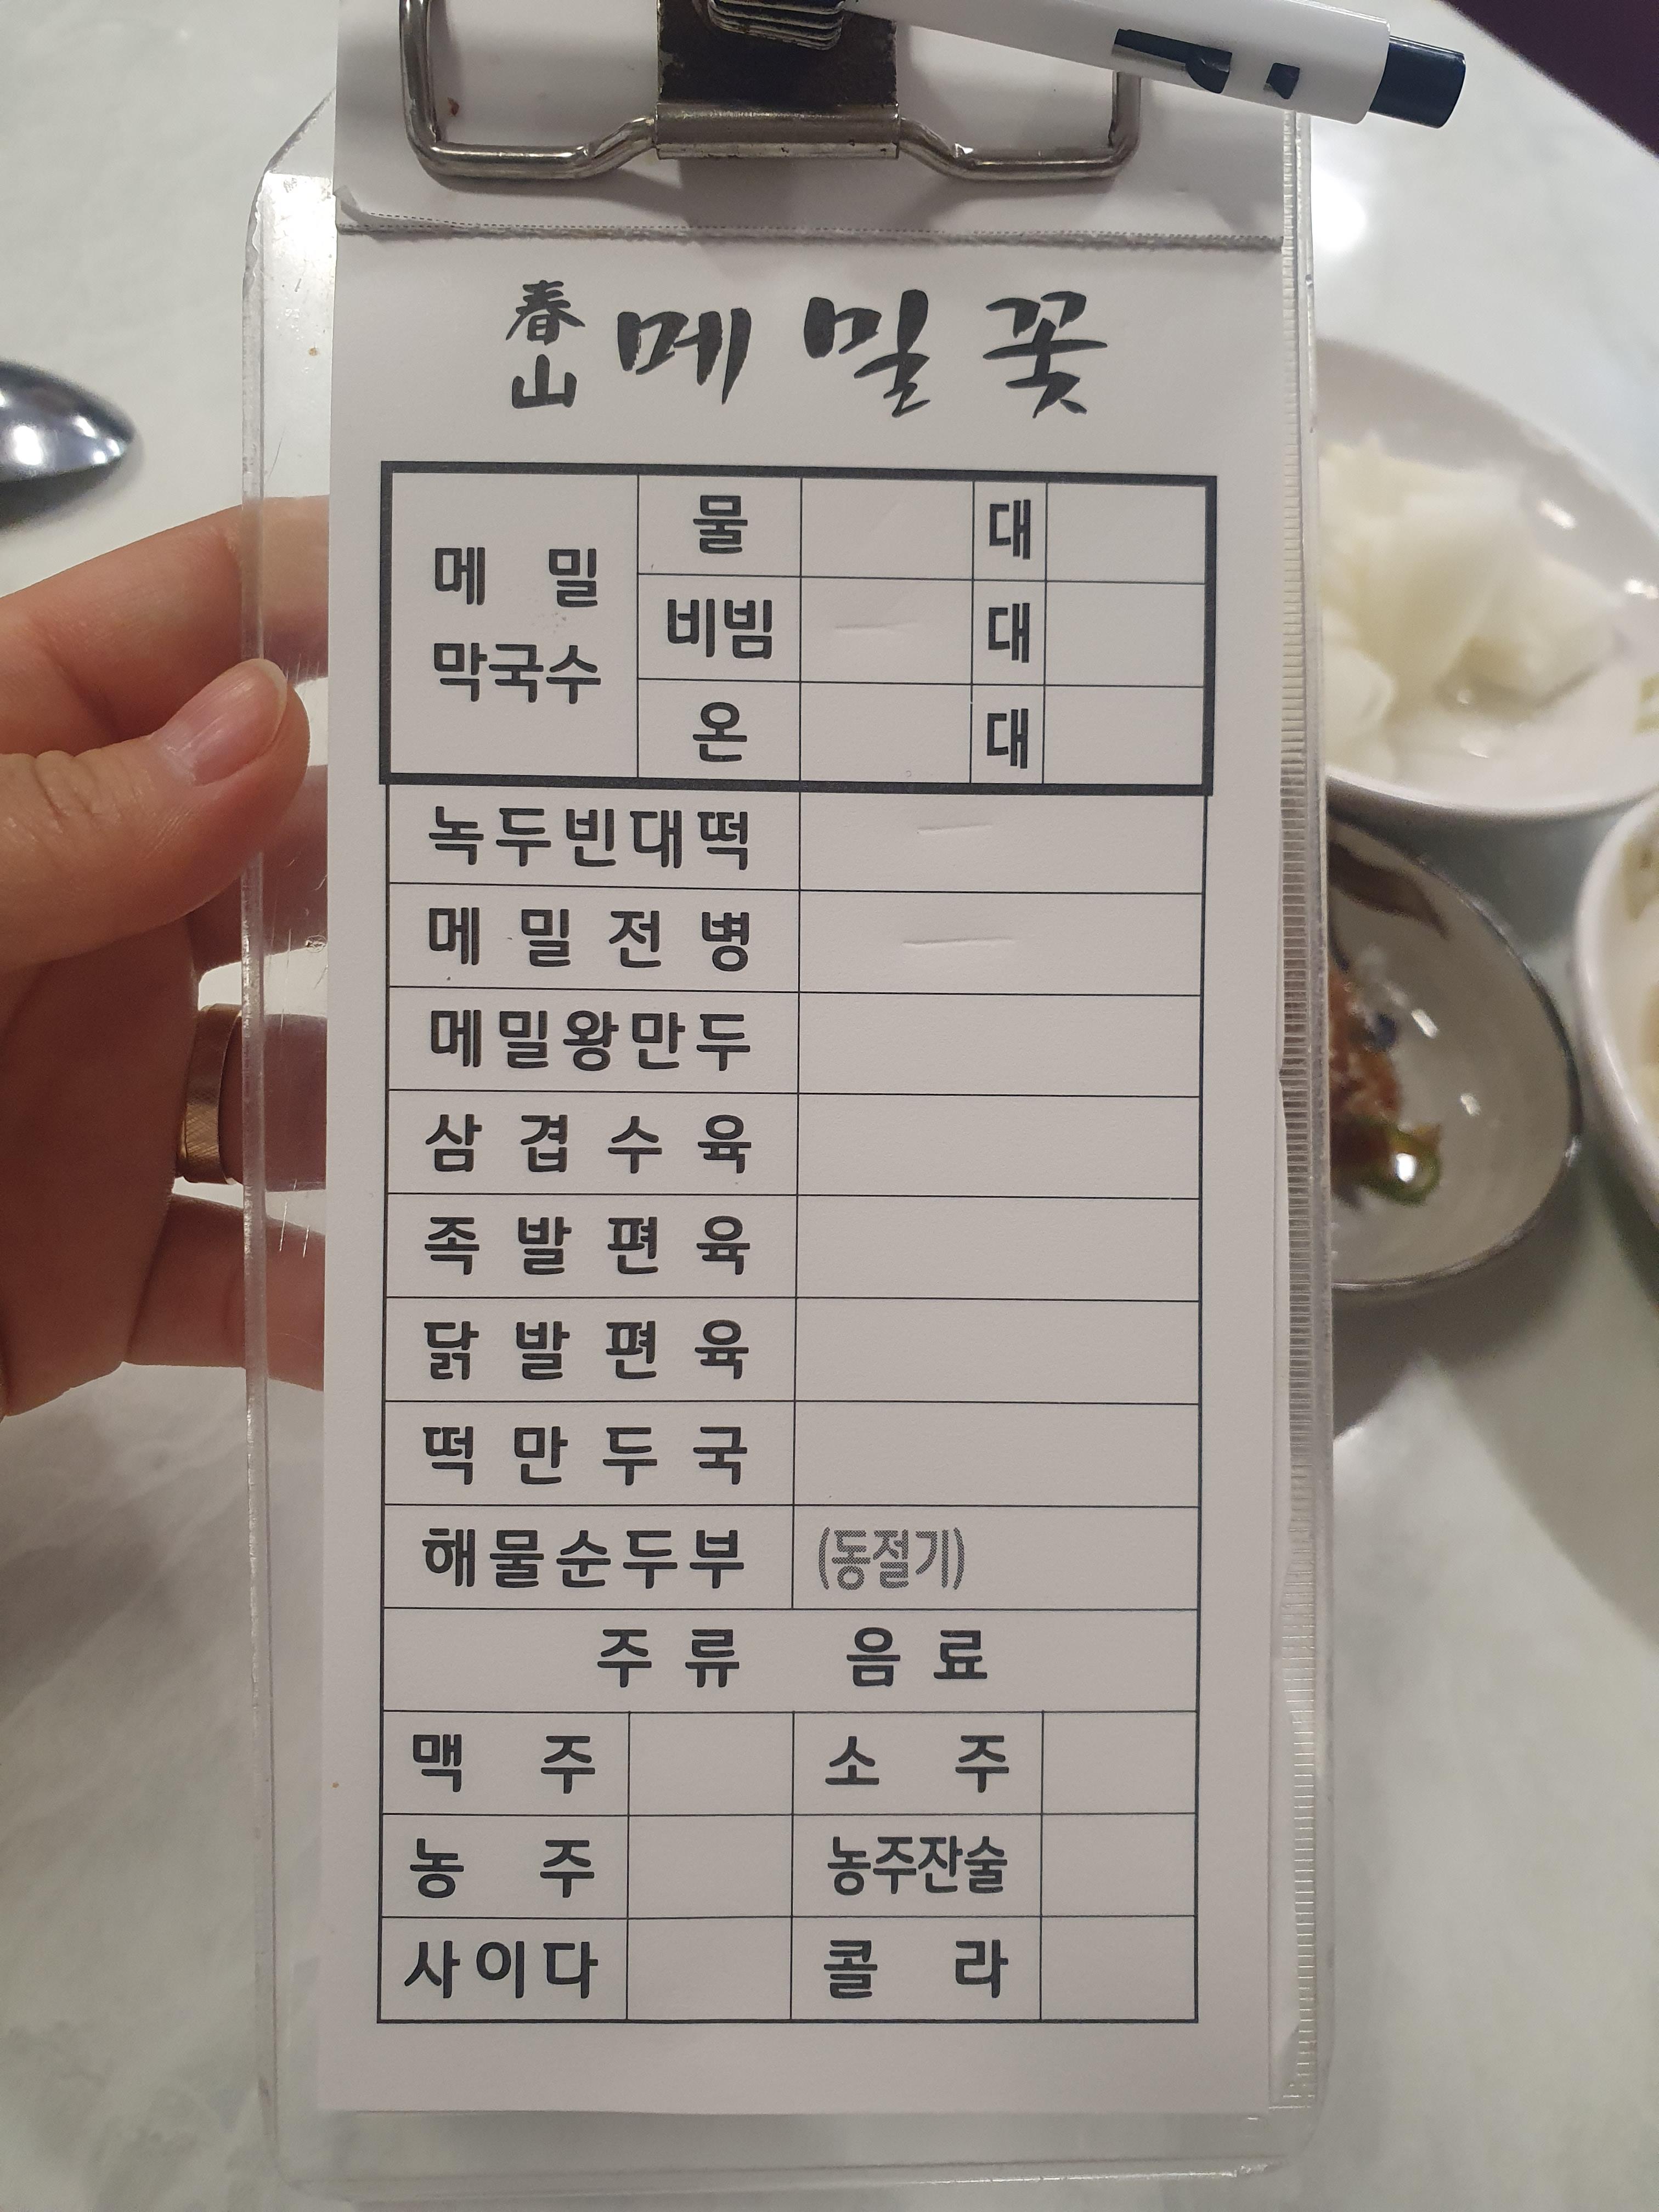 春山 메밀꽃
메밀 막국수
물 대
비빔 대
온 대
녹두빈대떡
메밀전병
메밀왕만두
삼겹수육
족발편육
닭발편육
떡만두국
해물순두부 (동절기)
주류 음료
맥주 소주
농주 농주잔술
사이다 콜라